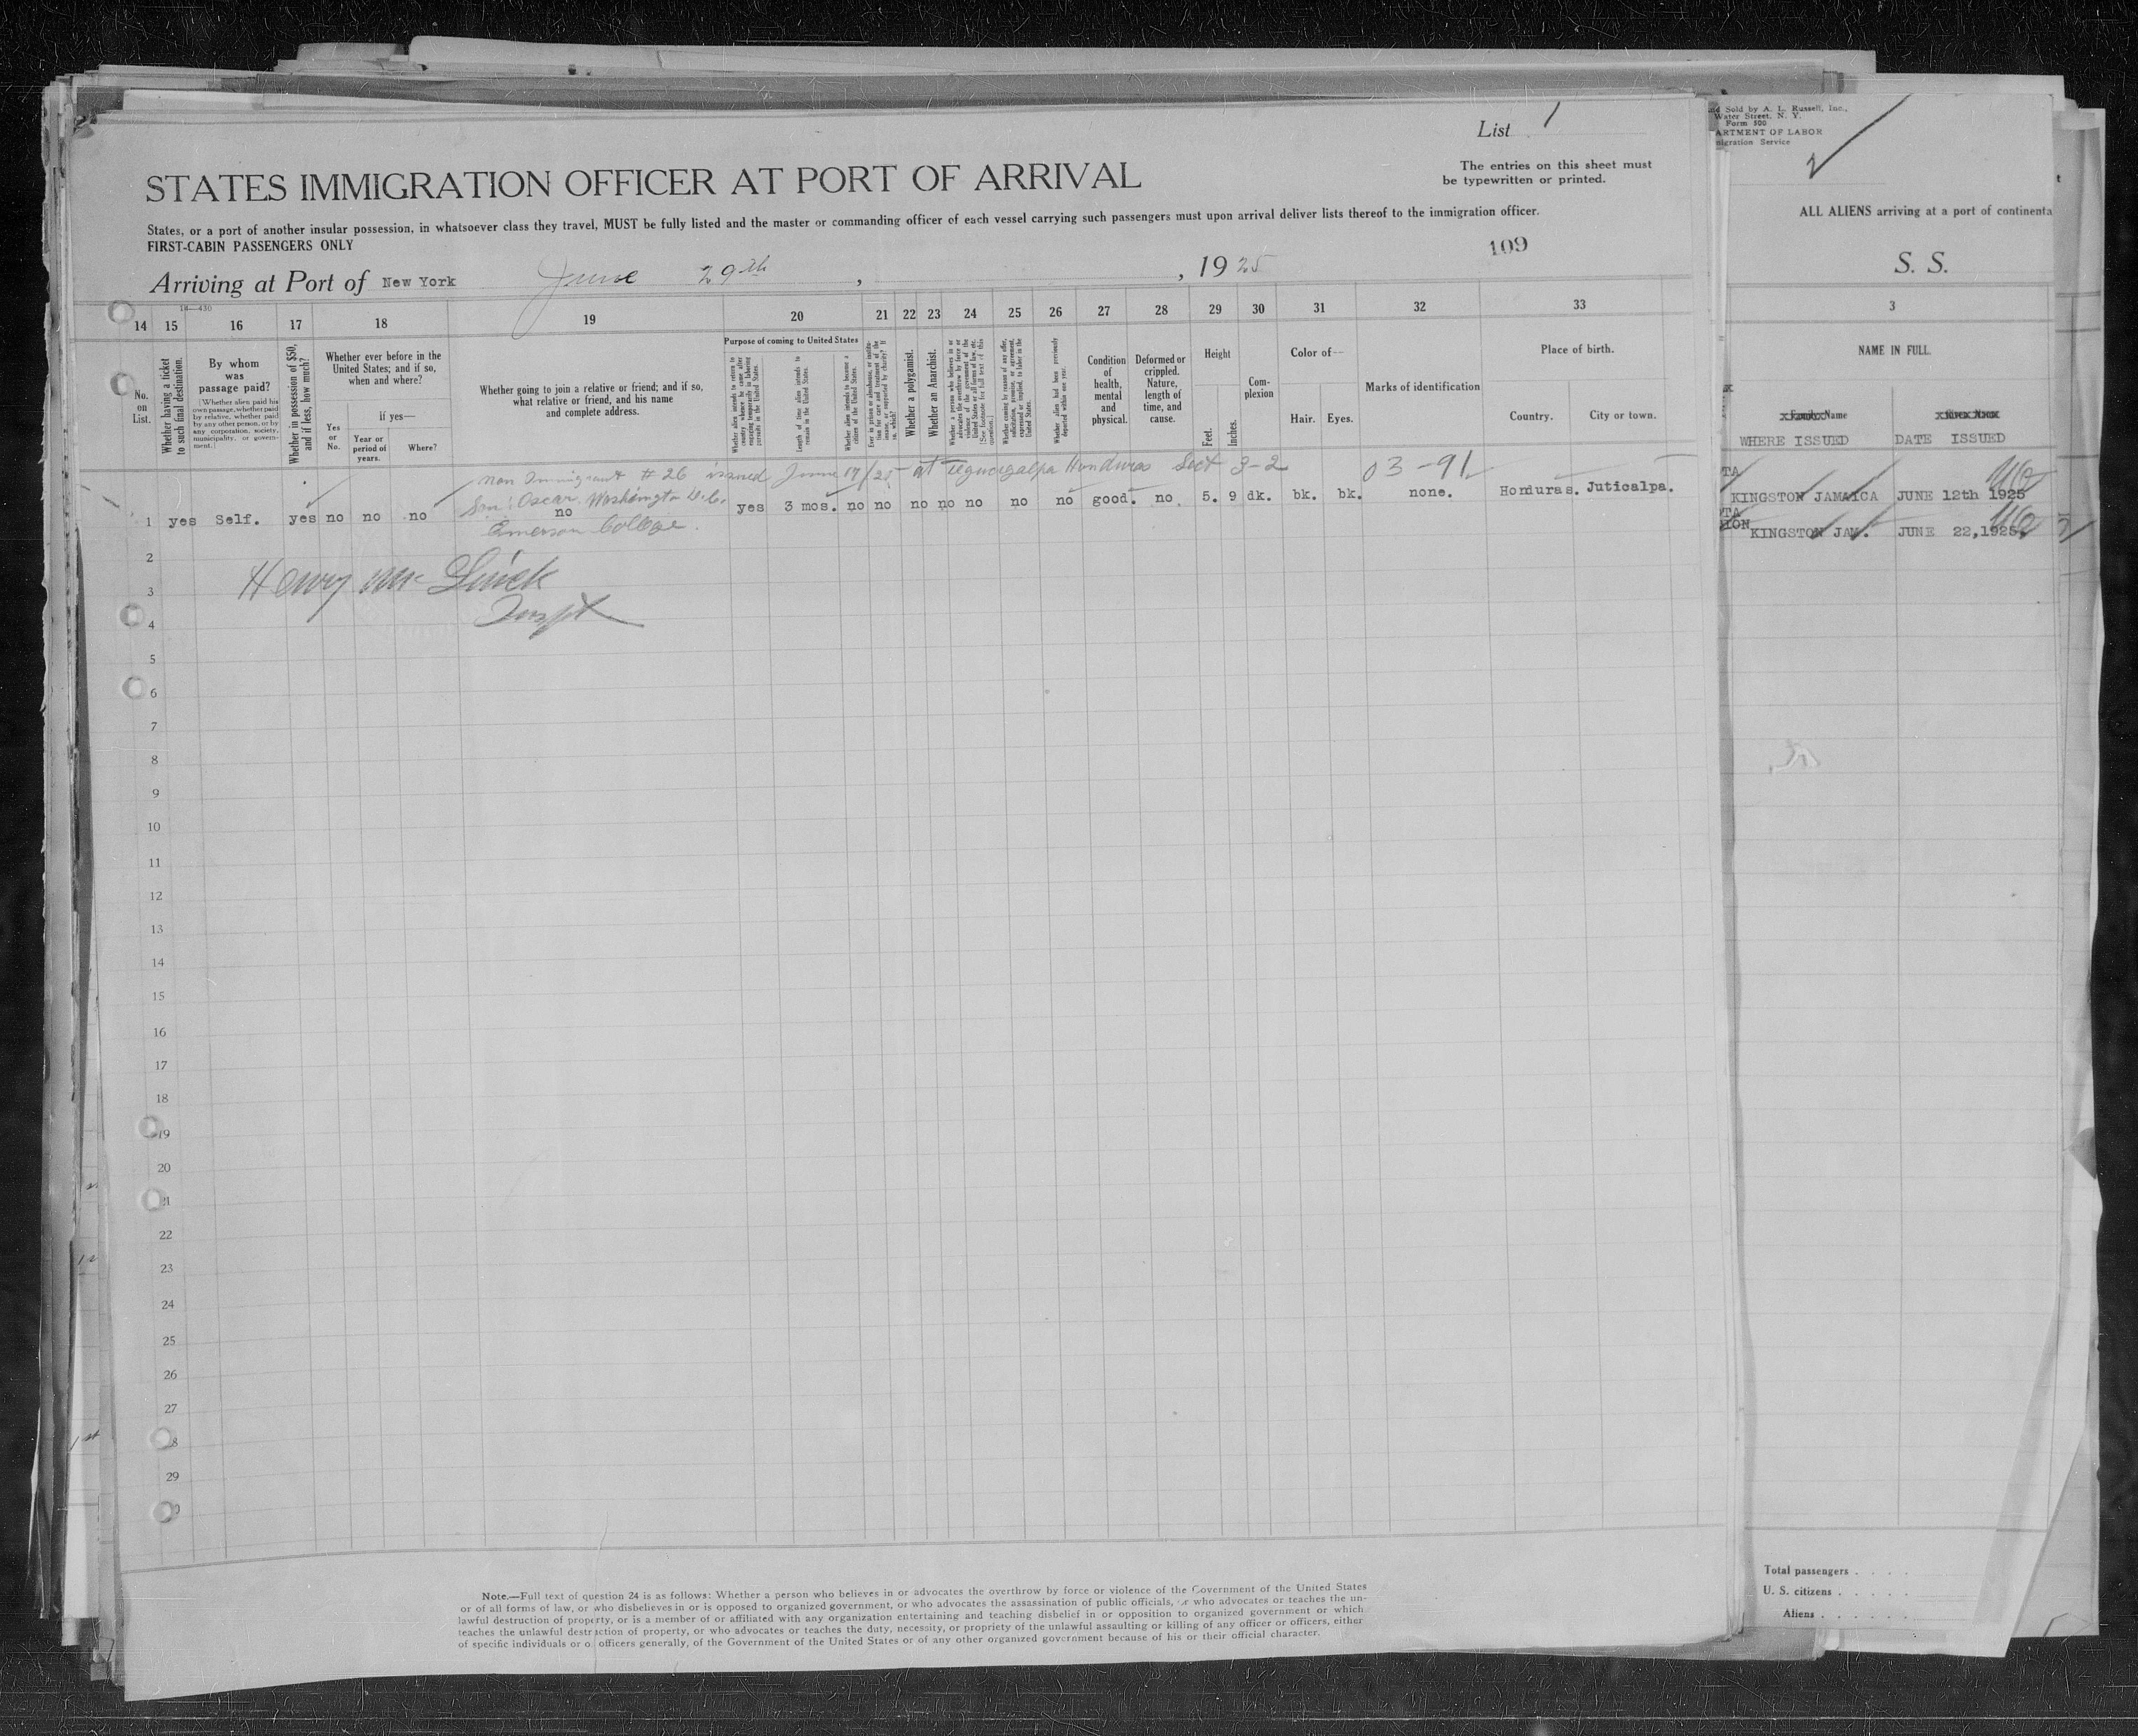 List 1
The entries on this sheet must
be typewritten or printed.
STATES IMMIGRATION OFFICER AT PORT OF ARRIVAL
States, or a port of another insular possession, in whatsoever class they travel, MUST be fully listed and the master or commanding officer of each vessel carrying such passengers must upon arrival deliver lists thereof to the immigration officer.
FIRST-CABIN PASSENGERS ONLY
109
Arriving at Port of New York June 29th, , 1925
14—430
14 15 16 17 18 19 20 21 22 23 24 25 26 27 28 29 30 31 32 33
No. on List.
Whether having a ticket to such final destination.
By whom was passage paid?
[Whether alien paid his own passage, whether paid by relative, whether paid by any other person, or by any corporation, society, municipality, or government.]
Whether in possession of $50, and if less, how much?
Whether ever before in the United States; and if so, when and where?
Yes or No.
if yes—
Year or period of years.
Where?
Whether going to join a relative or friend; and if so, what relative or friend, and his name and complete address.
Purpose of coming to United States
Whether alien intends to return to country whence he came after engaging temporarily in laboring pursuits in the United States.
Length of time alien intends to remain in the United States.
Whether alien intends to become a citizen of the United States.
Ever in prison or almshouse, or institution for care and treatment of the insane, or supported by charity? If so, which?
Whether a polygamist.
Whether an Anarchist.
Whether a person who believes in or advocates the overthrow by force or violence of the government of the United States or all forms of law, etc. (See footnote for full text of this question.)
Whether coming by reason of any offer, solicitation, promise, or agreement, expressed or implied, to labor in the United States.
Whether alien had been previously deported within one year.
Condition of health, mental and physical.
Deformed or crippled. Nature, length of time, and cause.
Height
Feet. Inches.
Complexion
Color of—
Hair. Eyes.
Marks of identification
Place of birth.
Country. City or town.
non Immigrant # 26 issued June 17/25 at Tegucigalpa Honduras Sect 3-2 03-91
Son: Oscar Washington D.C.
1 yes Self. yes no no no no yes 3 mos. no no no no no no no good. no. 5. 9 dk. bk. bk. none. Honduras. Juticalpa.
Emerson College.
2
Henry
3
4
5
6
7
8
9
10
11
12
13
14
15
16
17
18
19
20
21
22
23
24
25
26
27
28
29
Note.—Full text of question 24 is as follows: Whether a person who believes in or advocates the overthrow by force or violence of the Government of the United States
or of all forms of law, or who disbelieves in or is opposed to organized government, or who advocates the assassination of public officials, or who advocates or teaches the un-
lawful destruction of property, or is a member of or affiliated with any organization entertaining and teaching disbelief in or opposition to organized government or which
teaches the unlawful destruction of property, or who advocates or teaches the duty, necessity, or propriety of the unlawful assaulting or killing of any officer or officers, either
of specific individuals or of officers generally, of the Government of the United States or of any other organized government because of his or their official character.
Sold by A. L. Russell, Inc.,
Water Street, N. Y.
Form 500
ARTMENT OF LABOR
migration Service
2
ALL ALIENS arriving at a port of continenta
S. S.
3
NAME IN FULL.
Family Name
WHERE ISSUED DATE ISSUED
KINGSTON JAMAICA JUNE 12th 1925
KINGSTON JAM. JUNE 22,1925.
Total passengers . . . .
U. S. citizens . . . . .
Aliens . . . . . .